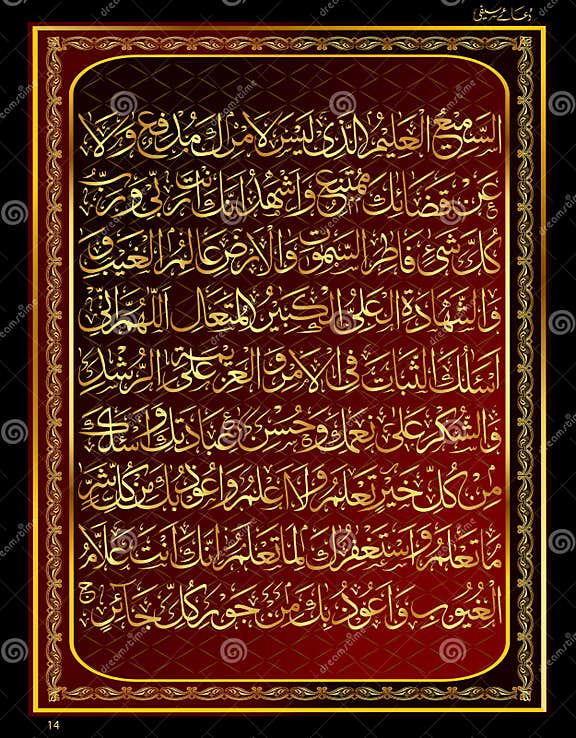 دعائے سیفی
السَّمِيعُ الْعَلِيمُ الَّذِى لَيْسَ لِأَمْرِكَ مَدْفَعٌ وَّلَا
عَنْ قَضَائِكَ مُمْتَنِعٌ وَأَشْهَدُ أَنَّكَ أَنْتَ رَبِّى وَرَبُّ
كُلِّ شَىْءٍ فَاطِرُ السَّمٰوٰتِ وَالْأَرْضِ عَالِمُ الْغَيْبِ
وَالشَّهَادَةِ الْعَلِىُّ الْكَبِيرُ الْمُتَعَالِ اَللّٰهُمَّ إِنِّى
اَسْئَلُكَ الثَّبَاتَ فِى الْأَمْرِ وَ الْعَزِيمَةَ عَلَى الرُّشْدِ
وَالشُّكْرَ عَلٰى نِعَمِكَ وَحُسْنَ عِبَادَتِكَ وَأَسْئَلُكَ
مِنْ كُلِّ خَيْرٍ تَعْلَمُ وَلَا أَعْلَمُ وَأَعُوذُ بِكَ مِنْ كُلِّ شَرِّ
مَا تَعْلَمُ وَأَسْتَغْفِرُكَ لِمَا تَعْلَمُ إِنَّكَ أَنْتَ عَلَّامُ
الْغُيُوبِ وَأَعُوذُ بِكَ مِنْ جَوْرِ كُلِّ جَائِرٍ ج
14
dreamstime